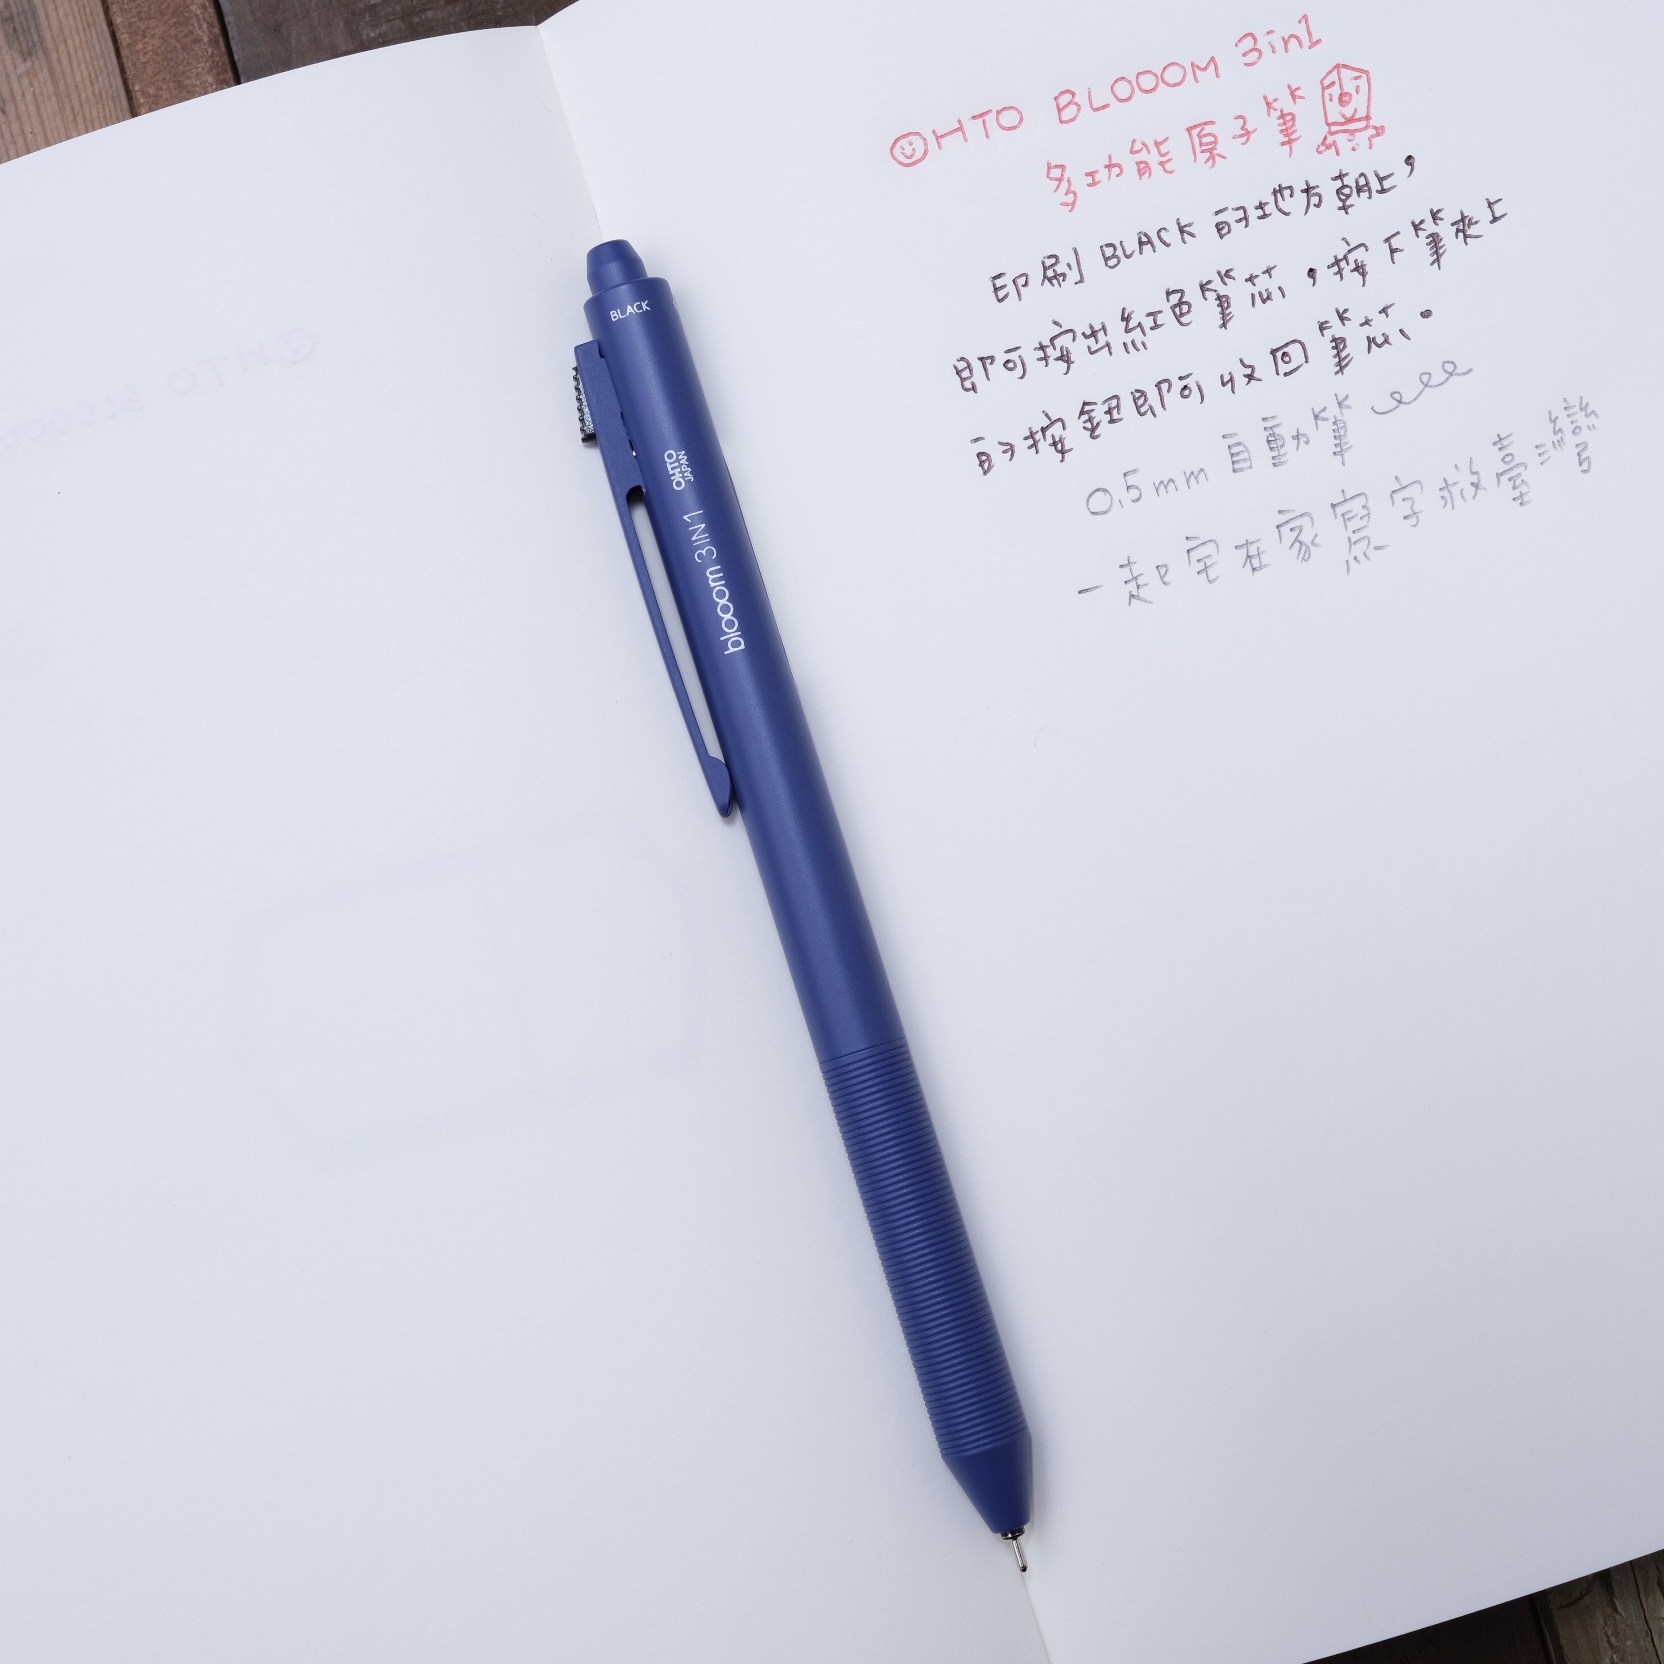 OHTO BLOOOM 3in1
多功能原子筆
印刷BLACK的地方朝上，
即可按出紅色筆芯，按下筆夾上
的按鈕即可收回筆芯。
0.5mm自動筆
一起宅在家寫字救臺灣
BLACK
OHTO
JAPAN
blooom 3IN1